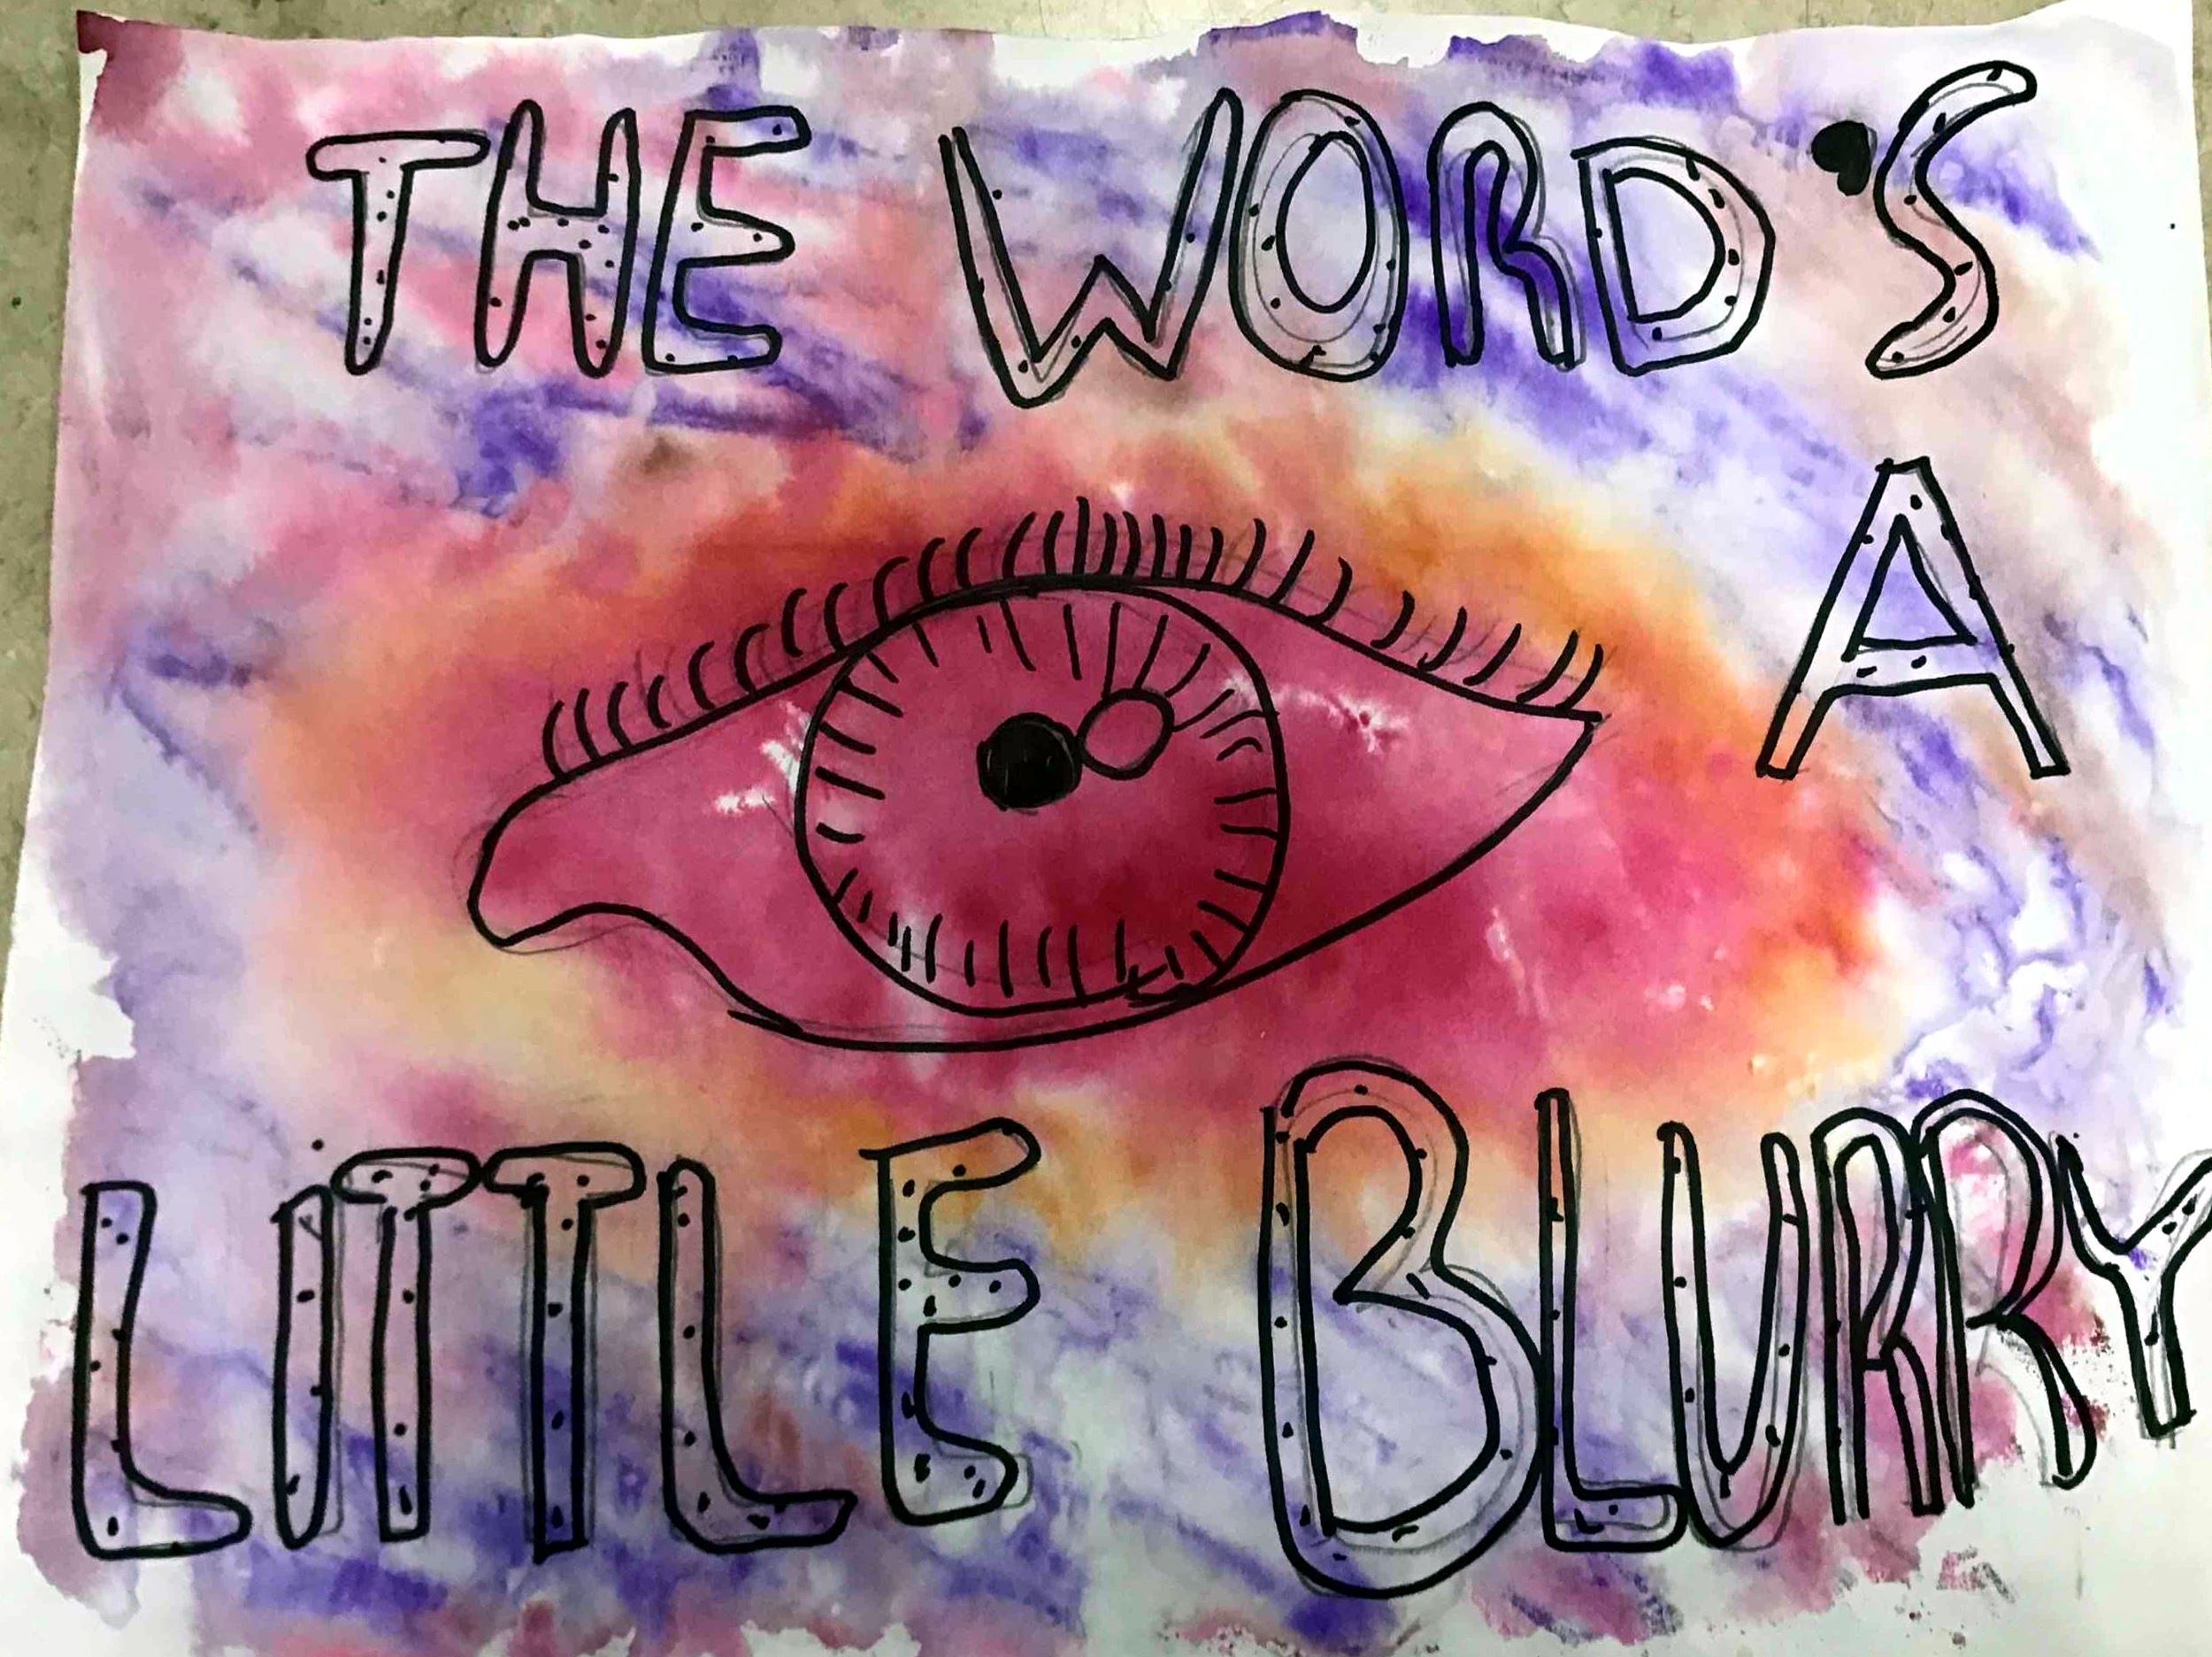 THE WORD'S
A
LITTLE BLURRY